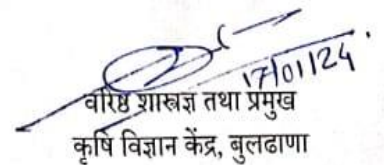 17/01/24.
वरिष्ठ शास्त्रज्ञ तथा प्रमुख
कृषि विज्ञान केंद्र, बुलढाणा